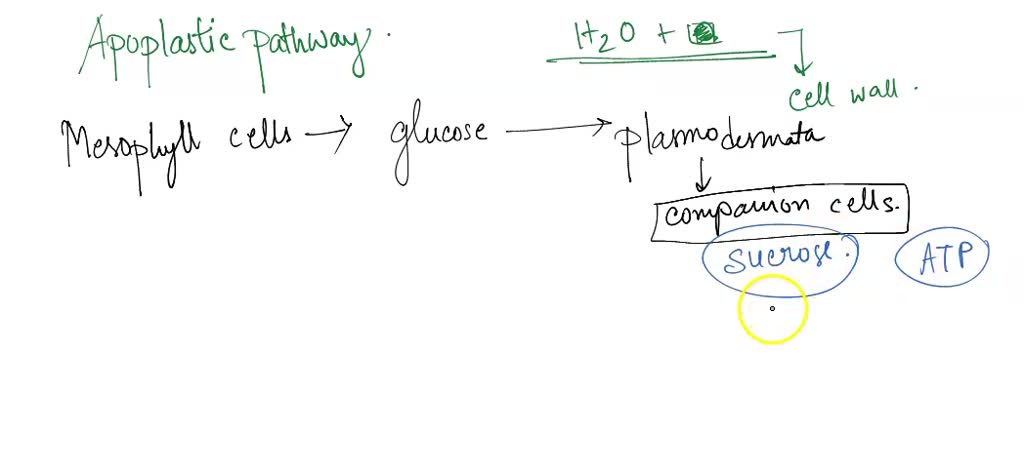 Apoplastic pathway.
H2O +
cell wall.
Mesophyll cells → glucose → plasmodesmata
↓
companion cells.
sucrose. ATP